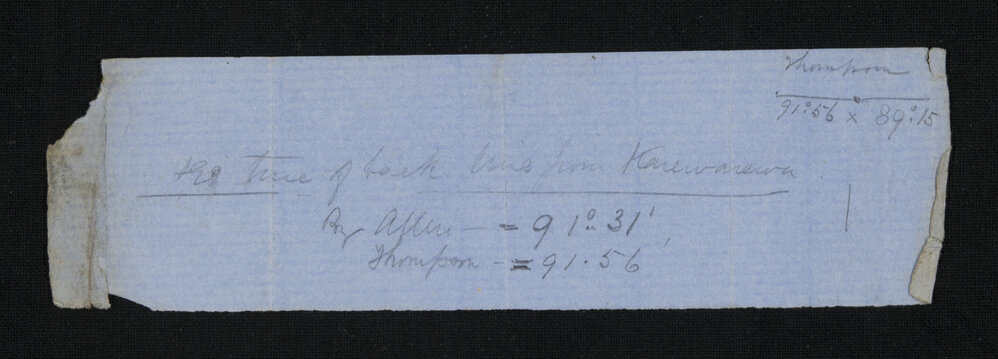 Thompson
91°.56 x 89°.15
true of back line from Karewarewa
By Allen — = 91°.31'
Thompson — = 91.56